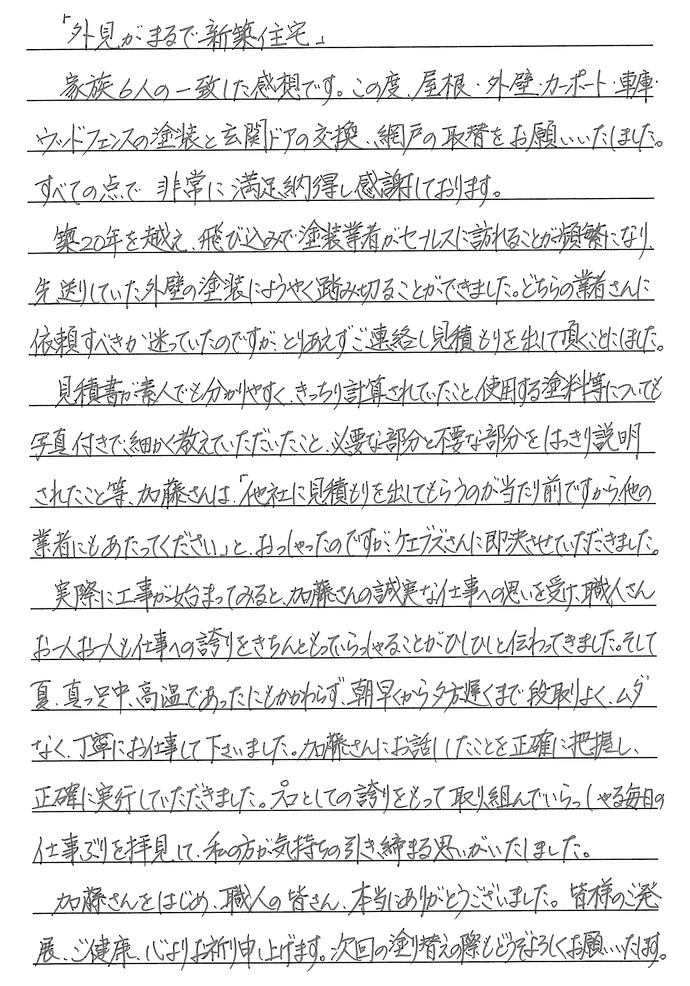 「外見がまるで新築住宅」
家族6人の一致した感想です。この度、屋根・外壁・カーポート・車庫・
ウッドフェンスの塗装と玄関ドアの交換、網戸の取替をお願いいたしました。
すべての点で非常に満足納得し感謝しております。
築20年を越え、飛び込みで塗装業者がセールスに訪れることが頻繁になり、
先送りしていた外壁の塗装にようやく踏み切ることができました。どちらの業者さんに
依頼すべきか迷っていたのですが、とりあえずご連絡し見積もりを出して頂くことにしました。
見積書が素人でも分かりやすく、きっちり計算されていたこと、使用する塗料等についても
写真付きで細かく教えていただいたこと、必要な部分と不要な部分をはっきり説明
されたこと等、加藤さんは、「他社に見積もりを出してもらうのが当たり前ですから、他の
業者にもあたってください」と、おっしゃったのですが、ケエブズさんに即決させていただきました。
実際に工事が始まってみると、加藤さんの誠実な仕事への思いを受け、職人さん
お一人お一人も仕事への誇りをきちんともっていらっしゃることがひしひしと伝わってきました。そして
夏、真っ只中、高温であったにもかかわらず、朝早くから夕方遅くまで段取りよく、ムダ
なく、丁寧にお仕事して下さいました。加藤さんにお話ししたことを正確に把握し、
正確に実行していただきました。プロとしての誇りをもって取り組んでいらっしゃる毎日の
仕事ぶりを拝見して、私の方が気持ちの引き締まる思いがいたしました。
加藤さんをはじめ、職人の皆さん、本当にありがとうございました。皆様のご発
展、ご健康、心よりお祈り申し上げます。次回の塗り替えの際もどうぞよろしくお願いいたします。